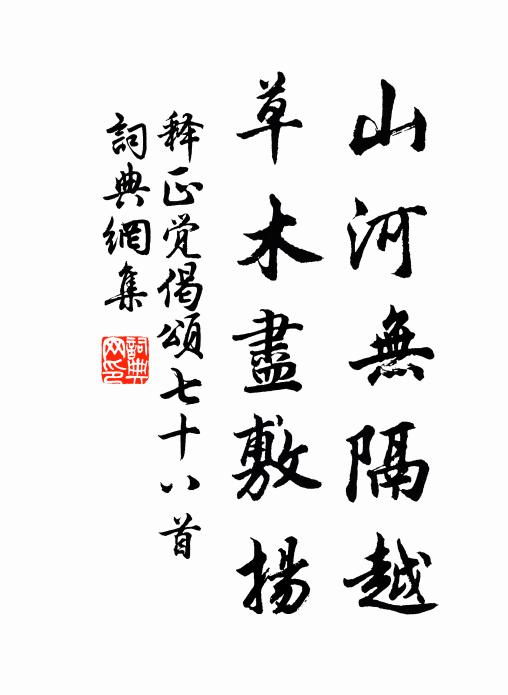 山河無隔越
草木盡敷揚
释正觉偈頌七十八首
詞典網集
詞典網印